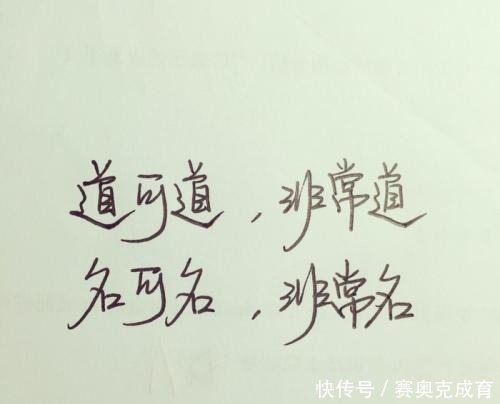 道可道，非常道
名可名，非常名
快传号／赛奥克成育